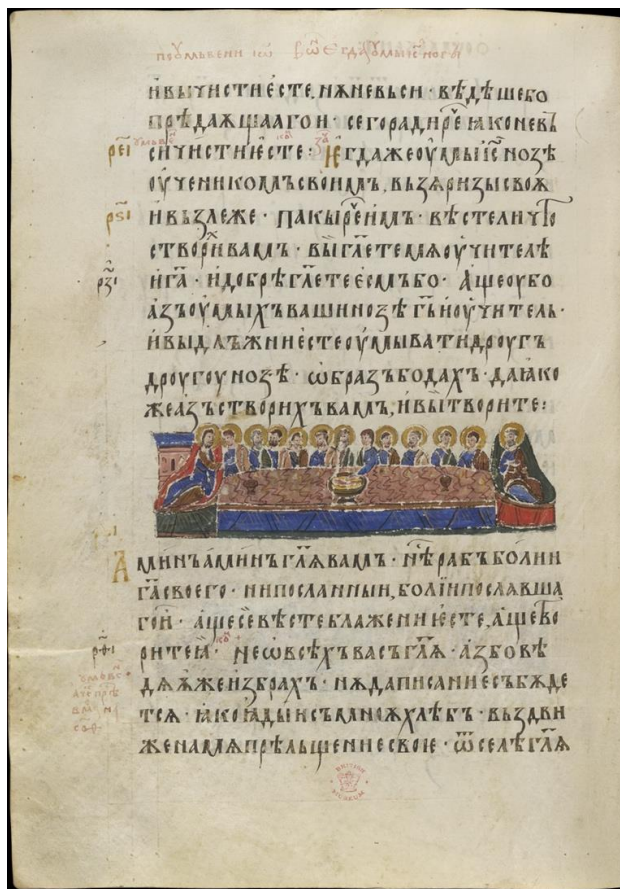 и вы чисти есте, нѫ не вьси · вѣдѣше бо
прѣдаѫщааго и · сего ради реⷱ҇ ꙗко не вь
си чисти есте : Егда же оумы іс҃ нозѣ
оученикомъ своимъ, възѧ ризы своѧ
и възлеже · пакы реⷱ҇ имъ · вѣсте ли что
створихⷯ вамъ · вы гл҃ете мѧ оучителѣ
и г҃а · и добрѣ гл҃ете есмъ бо · Аще оубо
азъ оумыхъ ваши нозѣ г҃ь и оучитель ·
и вы длъжни есте оумывати дроугъ
дроугоу нозѣ · ѡбразъ бо дахъ · да ꙗко
же азъ створихъ вамъ, и вы творите :
Аминъ аминъ гл҃ѧ вамъ · нѣⷭ҇ рабъ болии
г҃а своего · ни посланныи, болїи пославша
го и · Аще се вѣсте блажени есте, аще тво
рите ꙗ · Не ѡ всѣхъ васъ гл҃ѧ · азъ бо вѣ
дѧ ѧже избрах · нѫ да писание събѫде
тсѧ · ꙗко ꙗдыи съ мноѫ хлѣбъ · въздви
же на мѧ прѣльщение свое · ѿселѣ гл҃ѧ
BRITISH
MUSEUM